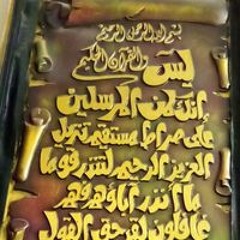 بسم الله الرحمن الرحيم
يس
والقرآن الحكيم
إنك لمن المرسلين
على صراط مستقيم تنزيل
العزيز الرحيم لتنذر قوما
ما أنذر آباؤهم فهم
غافلون لقد حق القول